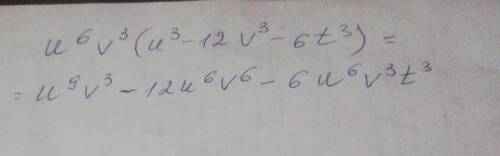 u⁶v³(u³-12v³-6t³)=
=u⁹v³-12u⁶v⁶-6u⁶v³t³